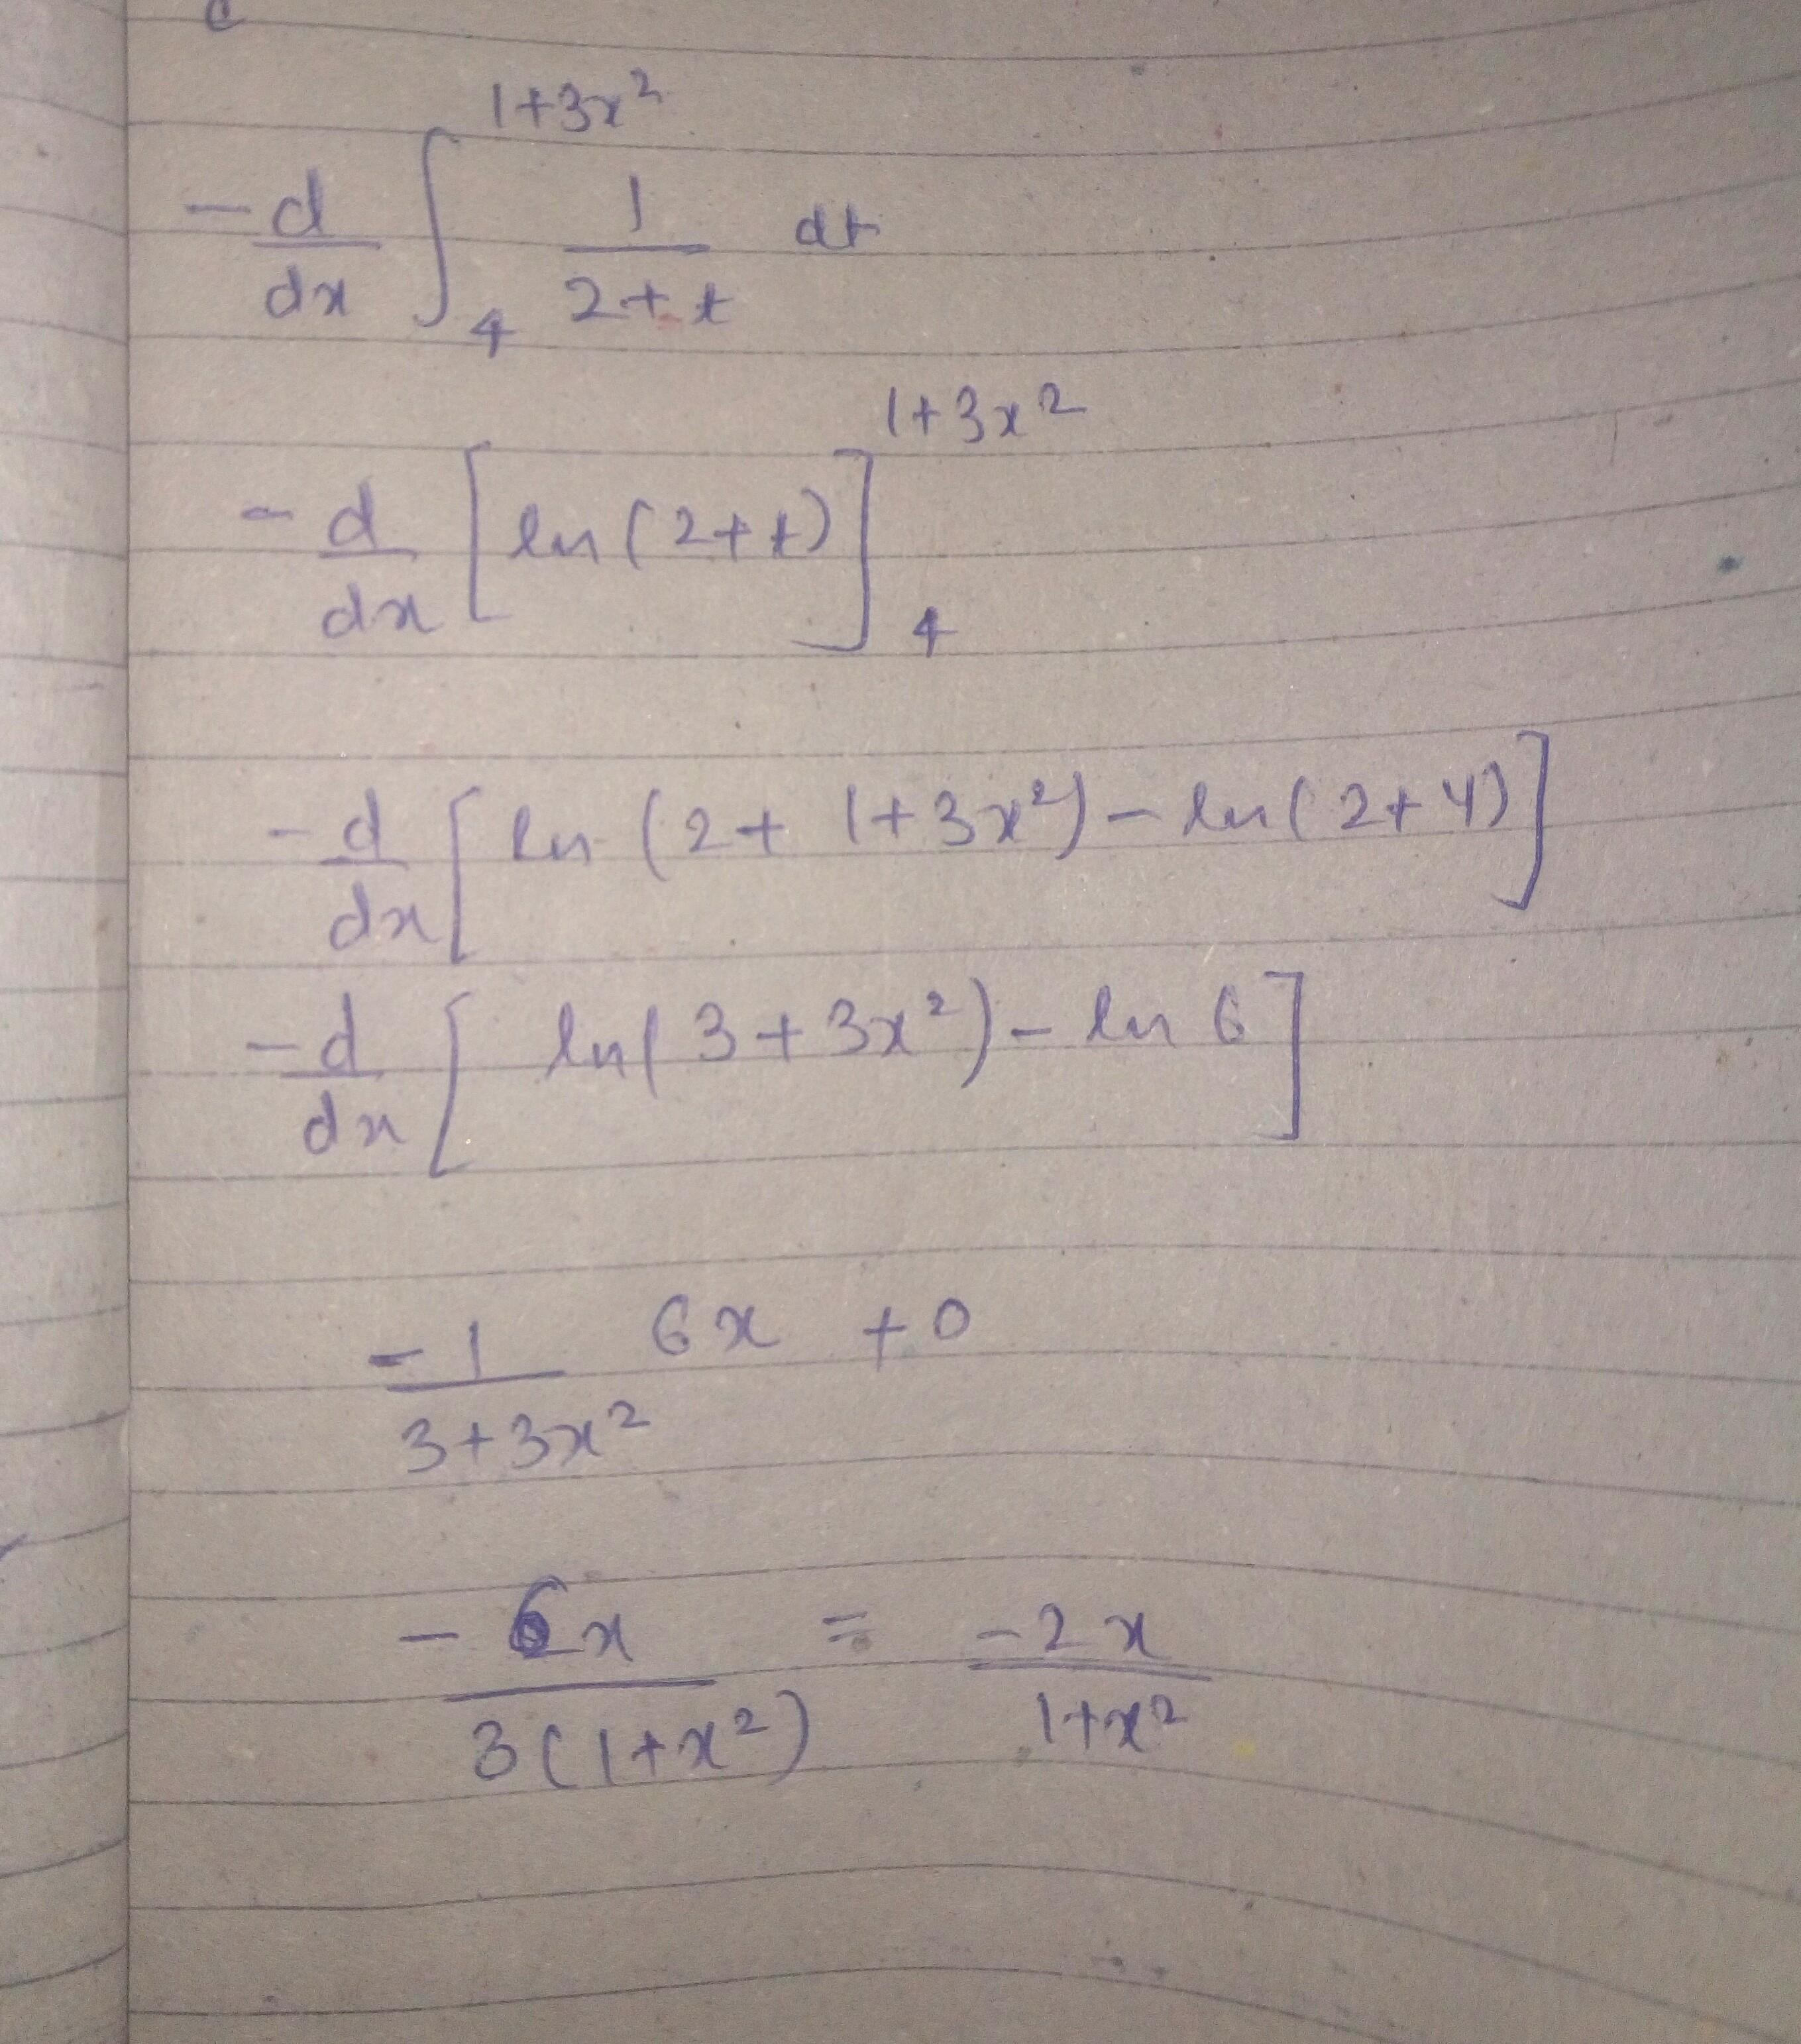 -d/dx ∫_4^{1+3x²} 1/(2+t) dt
-d/dx [ln(2+t)]_4^{1+3x²}
-d/dx [ln(2+1+3x²)-ln(2+4)]
-d/dx [ln(3+3x²)-ln 6]
-1/(3+3x²) 6x +0
-6x/3(1+x²) = -2x/1+x²